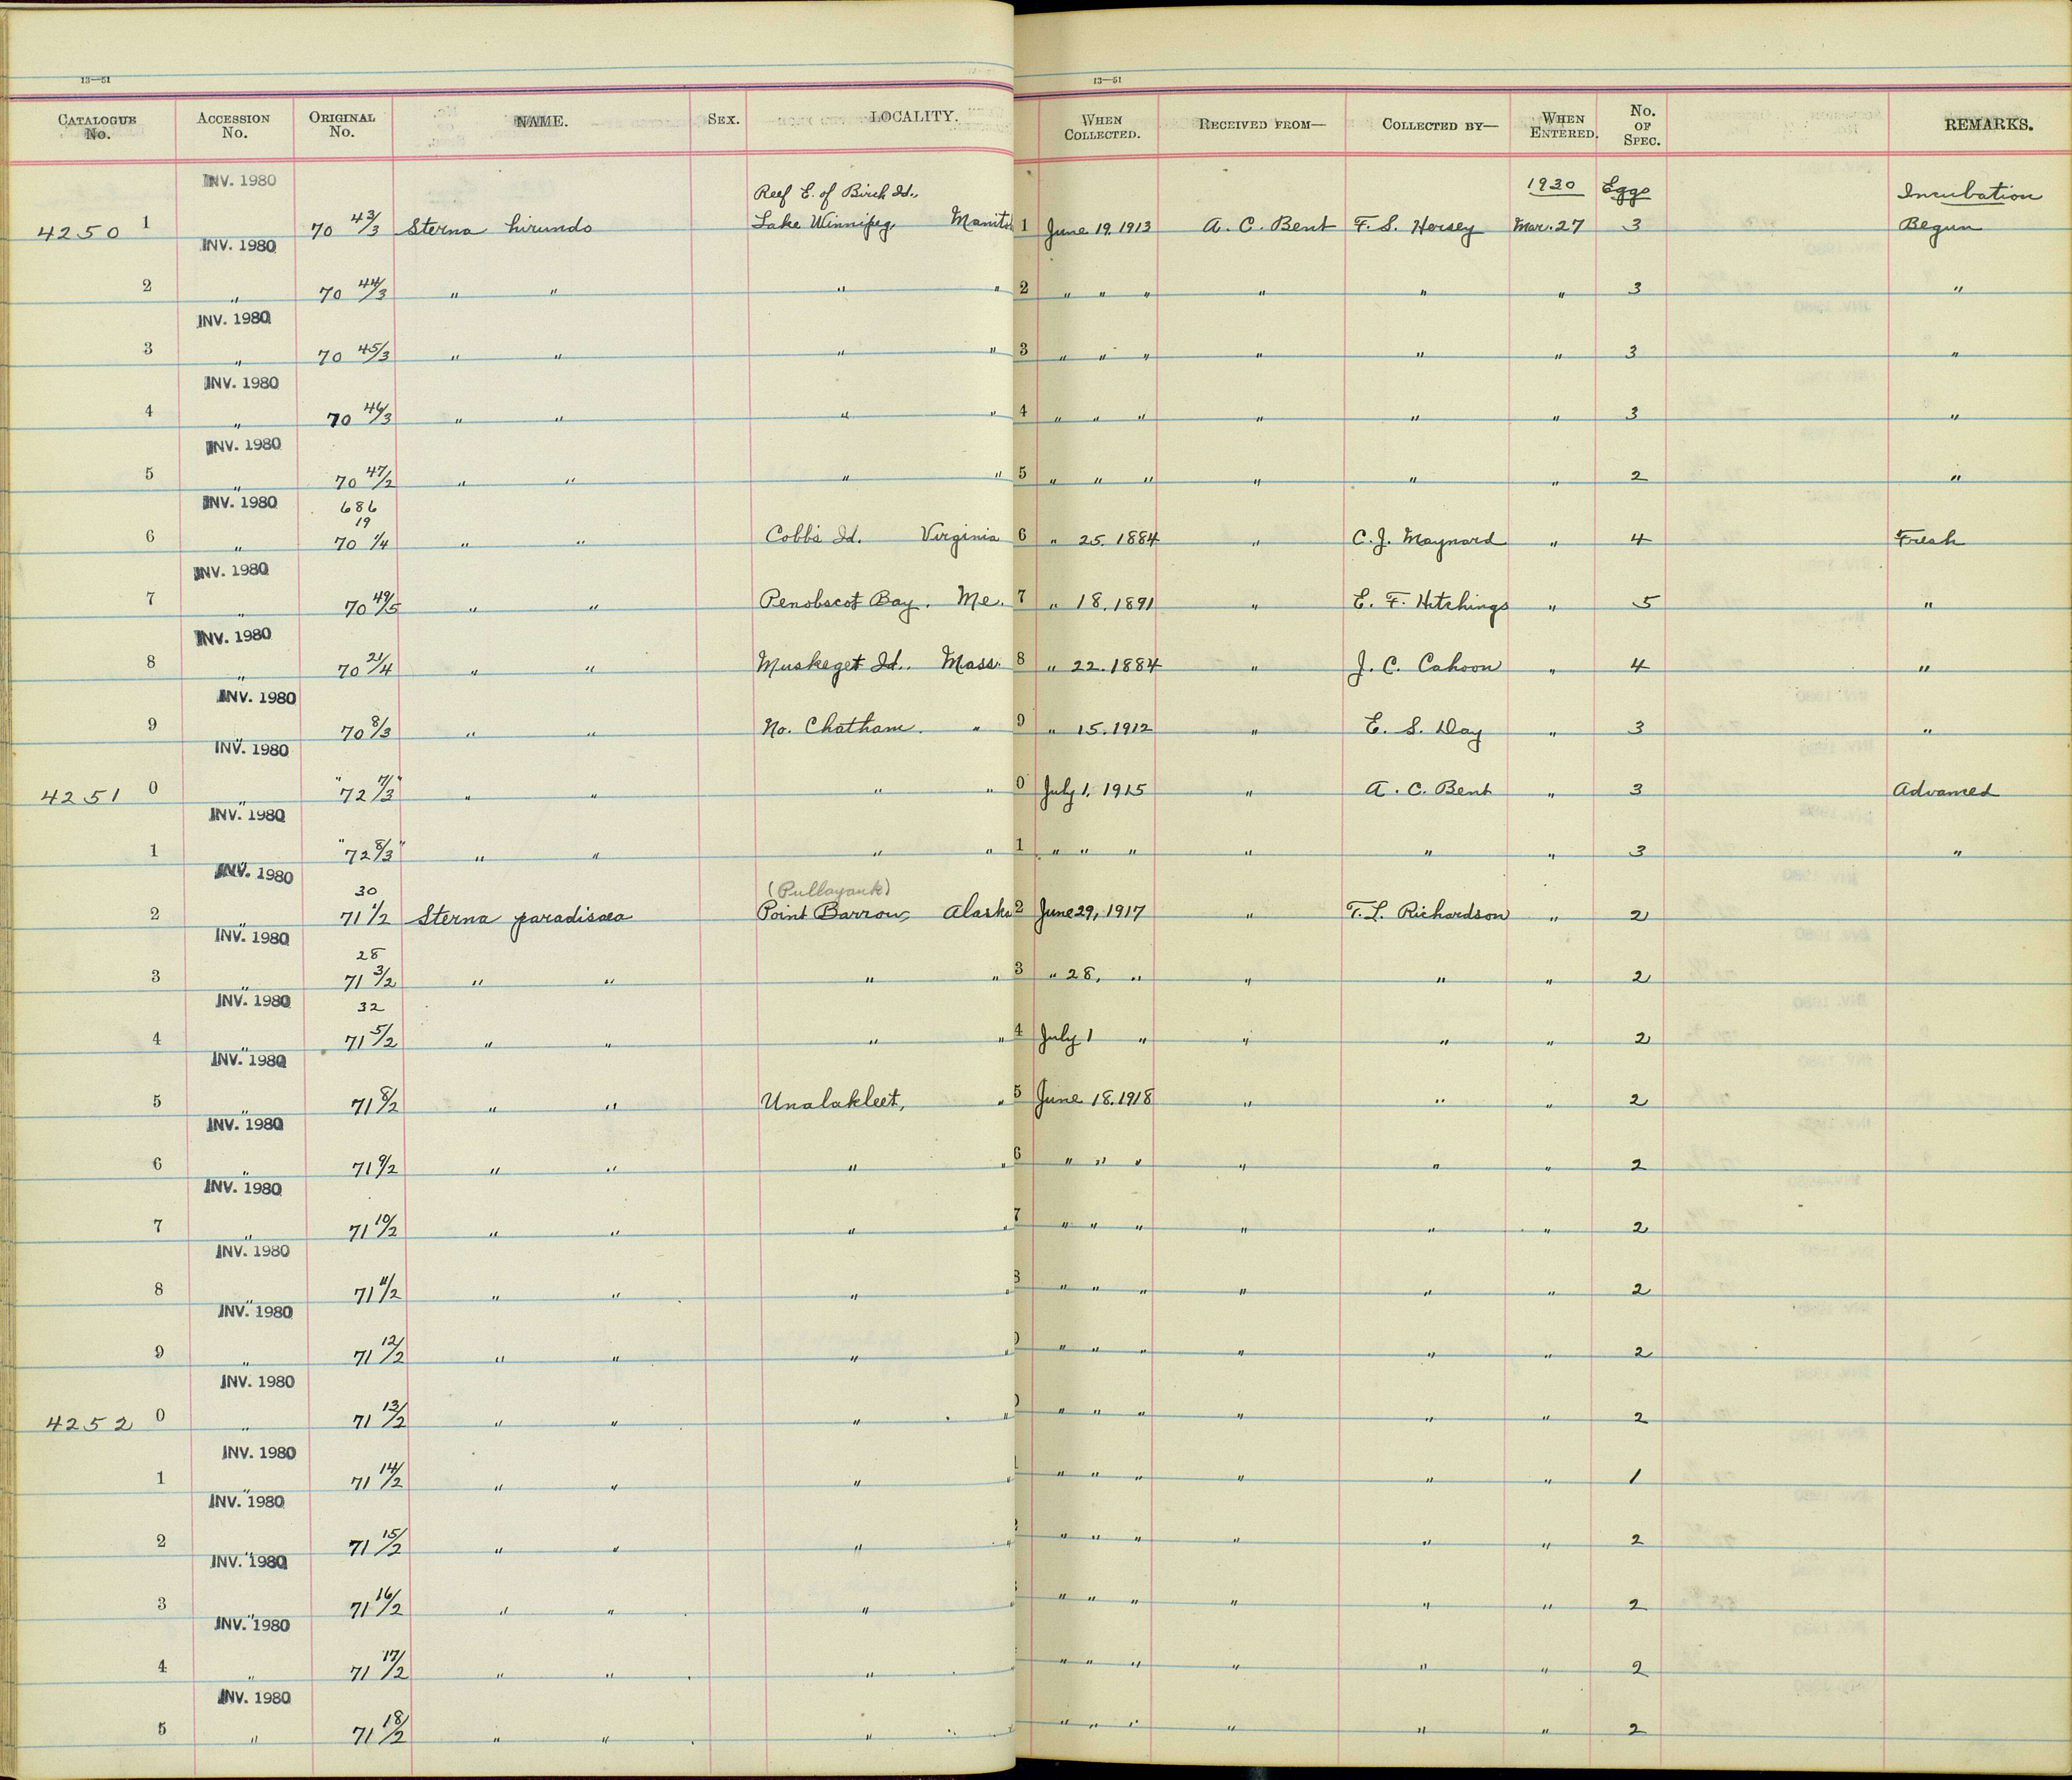 13—51 13—51
CATALOGUE No. ACCESSION No. ORIGINAL No. NAME. SEX. LOCALITY. WHEN COLLECTED. RECEIVED FROM— COLLECTED BY— WHEN ENTERED. No. OF SPEC. REMARKS.
INV. 1980 Reef E. of Birch Id., 1930 Eggs Incubation
4250 1 70 43/3 Sterna hirundo Lake Winnipeg, Manito 1 June 19, 1913 A. C. Bent F. S. Hersey Mar. 27 3 Begun
INV. 1980
2 " 70 44/3 " " " " 2 " " " " " " 3 "
INV. 1980
3 " 70 45/3 " " " " 3 " " " " " " 3 "
INV. 1980
4 " 70 46/3 " " " " 4 " " " " " " 3 "
INV. 1980
5 " 70 47/2 " " " " 5 " " " " " " 2 "
INV. 1980 686
19
6 " 70 1/4 " " Cobb's Id. Virginia 6 " 25. 1884 " C. J. Maynard " 4 Fresh
INV. 1980
7 " 70 49/5 " " Penobscot Bay. Me. 7 " 18. 1891 " E. F. Hitchings " 5 "
INV. 1980
8 " 70 21/4 " " Muskeget Id., Mass. 8 " 22. 1884 " J. C. Cahoon " 4 "
INV. 1980
9 " 70 8/3 " " No. Chatham. " 9 " 15. 1912 " E. S. Day " 3 "
INV. 1980
4251 0 " "72 7/3" " " " " 0 July 1, 1915 " A. C. Bent " 3 Advanced
INV. 1980
1 " "72 8/3" " " " " 1 " " " " " " 3 "
INV. 1980
30 (Pullayauk)
2 " 71 1/2 Sterna paradisaea Point Barrow, Alaska 2 June 29, 1917 " T. L. Richardson " 2
INV. 1980
28
3 " 71 3/2 " " " " 3 " 28, " " " " 2
INV. 1980
32
4 " 71 5/2 " " " " 4 July 1 " " " " 2
INV. 1980
5 " 71 8/2 " " Unalakleet, " 5 June 18. 1918 " " " 2
INV. 1980
6 " 71 9/2 " " " " 6 " " " " " " 2
INV. 1980
7 " 71 10/2 " " " " 7 " " " " " " 2
INV. 1980
8 " 71 11/2 " " " " 8 " " " " " " 2
INV. 1980
9 " 71 12/2 " " " " " " " " " " 2
INV. 1980
4252 0 " 71 13/2 " " " " " " " " " " 2
INV. 1980
1 " 71 14/2 " " " " " " " " " " 1
INV. 1980
2 " 71 15/2 " " " " " " " " " " 2
INV. 1980
3 " 71 16/2 " " " " " " " " " " 2
INV. 1980
4 " 71 17/2 " " " " " " " " " 2
INV. 1980
5 " 71 18/2 " " " " " " " " " " 2